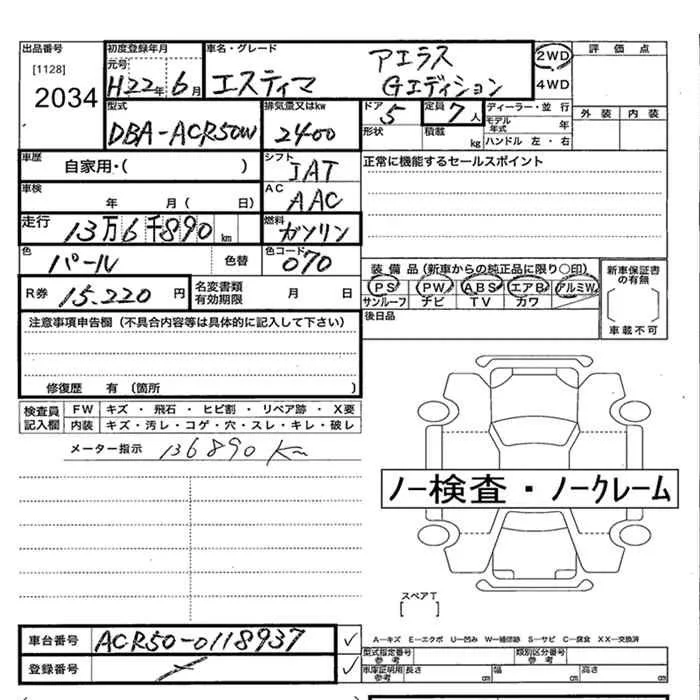 出品番号 初度登録年月 車名・グレード 評価点
[1128] 元号 アエラス 2WD
2034 H22年6月 エスティマ Gエディション 4WD
型式 排気量又はkw ドア 定員 ディーラー・並行 外装 内装
DBA-ACR50W 2400 5 7人 モデル年式 年
形状 積載 kg ハンドル 左・右
車歴 自家用・( ) シフト IAT 正常に機能するセールスポイント
車検 年 月( 日) AC AAC
走行 13万6千890km 燃料 ガソリン
色 パール 色替 色コード 070
装備品(新車からの純正品に限り〇印) 新車保証書の有無
R券 15.220円 名変書類有効期限 月 日
PS PW ABS エアB アルミW
サンルーフ ナビ TV カワ
注意事項申告欄(不具合内容等は具体的に記入して下さい) 後日品 車載不可
修復歴 有(箇所 )
検査員記入欄 FW キズ・飛石・ヒビ割・リペア跡・X要
内装 キズ・汚レ・コゲ・穴・スレ・キレ・破レ
メーター指示 136890Km
ノー検査・ノークレーム
スペアT
[ ]
車台番号 ACR50-0118937 ✓
A―キズ E―エクボ U―凹み W―補修跡 S―サビ C―腐食 XX―交換済
型式指定番号参考 類別区分番号参考
登録番号 ✓
車庫証明用参考 長さ cm 幅 cm 高さ cm